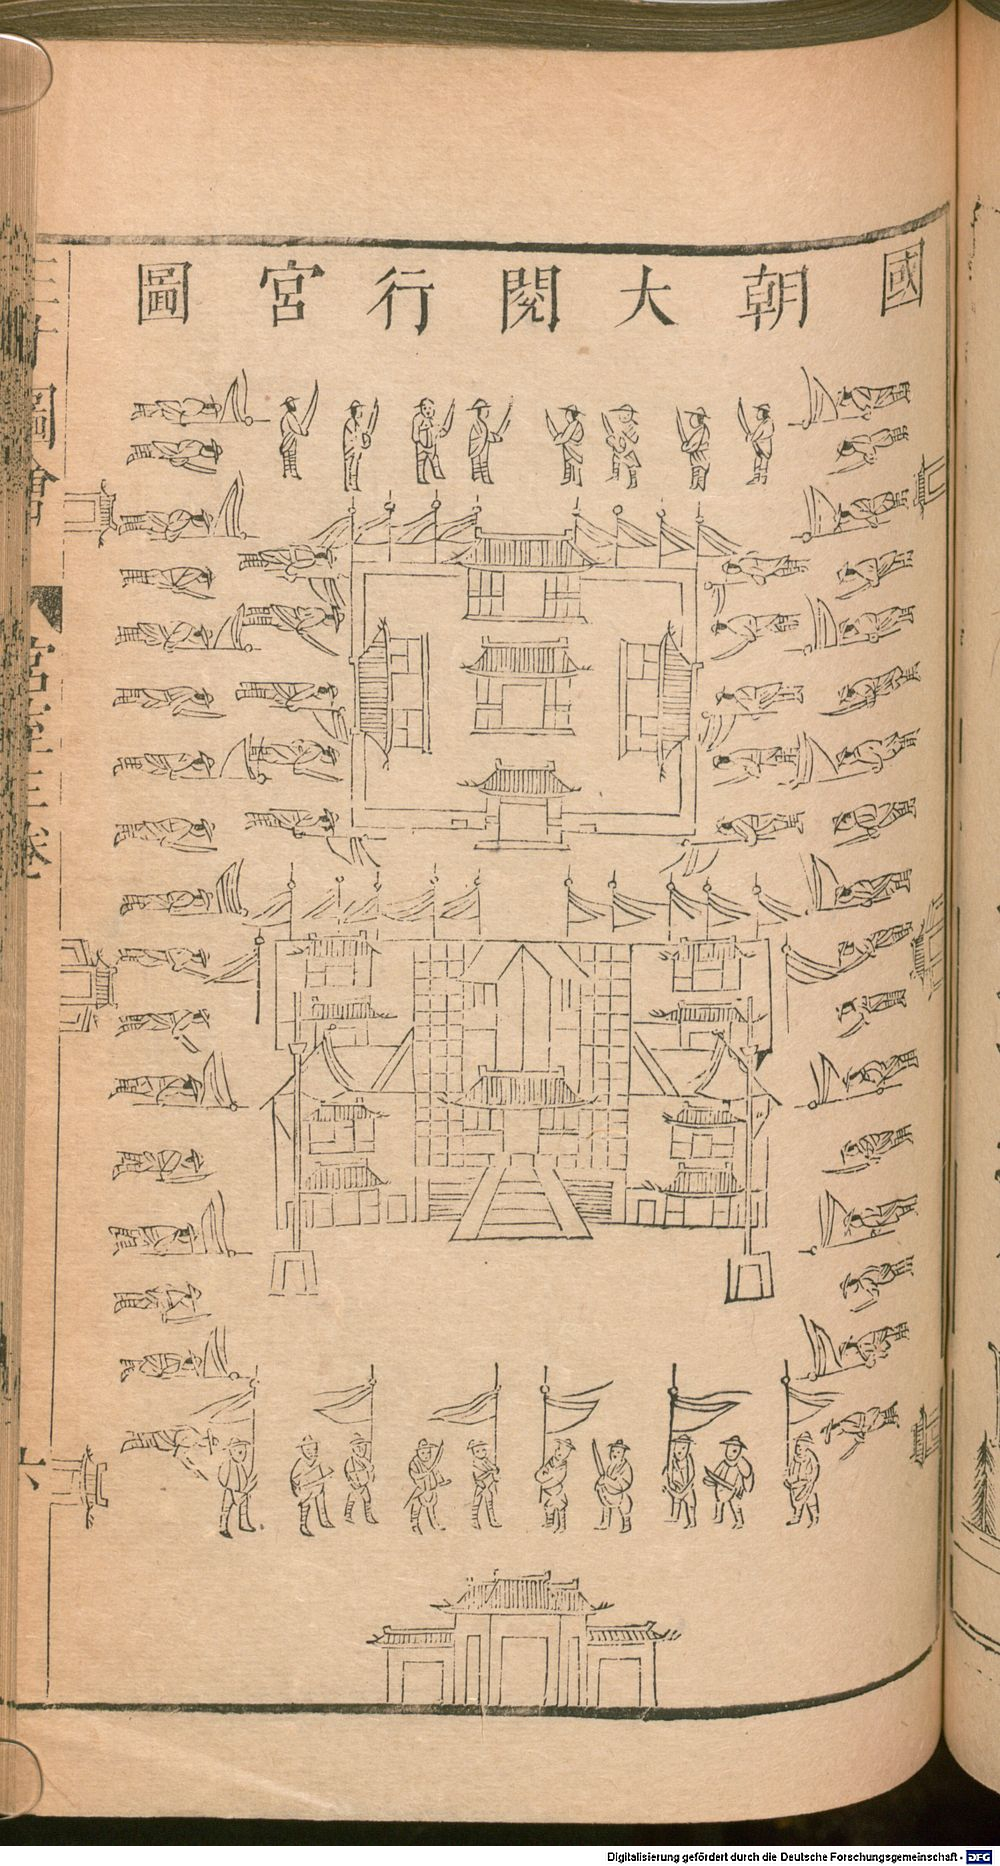 國朝大閱行宮圖
三才圖會
宮室三卷
六
Digitalisierung gefördert durch die Deutsche Forschungsgemeinschaft - DFG